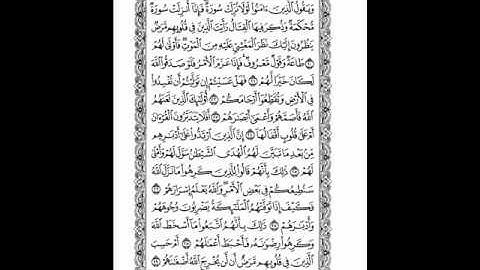 وَيَقُولُ الَّذِينَ ءَامَنُوا لَوْلَا نُزِّلَتْ سُورَةٌ فَإِذَا أُنزِلَتْ سُورَةٌ
مُّحْكَمَةٌ وَذُكِرَ فِيهَا الْقِتَالُ رَأَيْتَ الَّذِينَ فِي قُلُوبِهِم مَّرَضٌ
يَنظُرُونَ إِلَيْكَ نَظَرَ الْمَغْشِيِّ عَلَيْهِ مِنَ الْمَوْتِ فَأَوْلَىٰ لَهُمْ
۝٢٠ طَاعَةٌ وَقَوْلٌ مَّعْرُوفٌ فَإِذَا عَزَمَ الْأَمْرُ فَلَوْ صَدَقُوا اللَّهَ
لَكَانَ خَيْرًا لَّهُمْ ۝٢١ فَهَلْ عَسَيْتُمْ إِن تَوَلَّيْتُمْ أَن تُفْسِدُوا
فِي الْأَرْضِ وَتُقَطِّعُوا أَرْحَامَكُمْ ۝٢٢ أُولَٰئِكَ الَّذِينَ لَعَنَهُمُ
اللَّهُ فَأَصَمَّهُمْ وَأَعْمَىٰ أَبْصَٰرَهُمْ ۝٢٣ أَفَلَا يَتَدَبَّرُونَ الْقُرْءَانَ
أَمْ عَلَىٰ قُلُوبٍ أَقْفَالُهَا ۝٢٤ إِنَّ الَّذِينَ ارْتَدُّوا عَلَىٰ أَدْبَٰرِهِم
مِّن بَعْدِ مَا تَبَيَّنَ لَهُمُ الْهُدَى الشَّيْطَٰنُ سَوَّلَ لَهُمْ وَأَمْلَىٰ
لَهُمْ ۝٢٥ ذَٰلِكَ بِأَنَّهُمْ قَالُوا لِلَّذِينَ كَرِهُوا مَا نَزَّلَ اللَّهُ
سَنُطِيعُكُمْ فِي بَعْضِ الْأَمْرِ وَاللَّهُ يَعْلَمُ إِسْرَارَهُمْ ۝٢٦
فَكَيْفَ إِذَا تَوَفَّتْهُمُ الْمَلَٰئِكَةُ يَضْرِبُونَ وُجُوهَهُمْ
وَأَدْبَٰرَهُمْ ۝٢٧ ذَٰلِكَ بِأَنَّهُمُ اتَّبَعُوا مَا أَسْخَطَ اللَّهَ
وَكَرِهُوا رِضْوَٰنَهُ فَأَحْبَطَ أَعْمَٰلَهُمْ ۝٢٨ أَمْ حَسِبَ
الَّذِينَ فِي قُلُوبِهِم مَّرَضٌ أَن لَّن يُخْرِجَ اللَّهُ أَضْغَٰنَهُمْ ۝٢٩